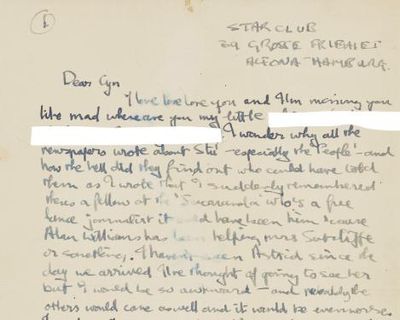 1
STAR CLUB
39 GROSSE FREIHEIT
ALTONA HAMBURG.
Dear Cyn
I love love love you and I'm missing you
like mad where are you my little
I wonder why all the
newspapers wrote about Stu - especially the 'People' - and
how the hell did they find out who could have told
them as I wrote that I suddenly remembered
theres a fellow at the 'Jacaranda' who's a free
lance journalist it could have been him 'cause
Alan Williams has been helping Mrs Sutcliffe
or something. I haven't seen Astrid since the
day we arrived I've thought of going to see her
but I would be so awkward - and probably the
others would come as well and it would be even worse.